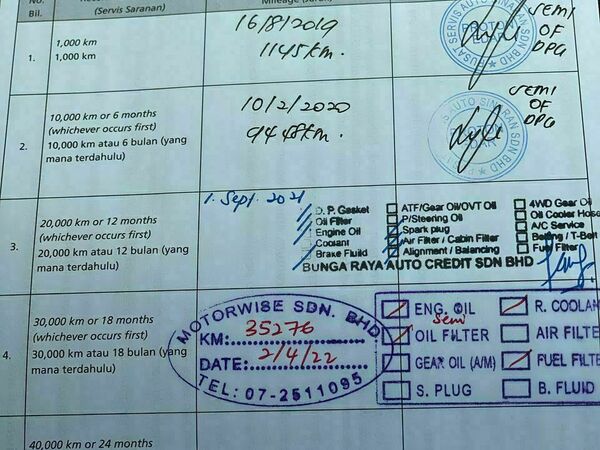 No.
Bil.
(Servis Saranan)
1.
1,000 km
1,000 km
16/8/2019
1145km.
PUSAT SERVIS AUTO SINARAN SDN BHD
PROTON
EDAR
SEMI
OF
DPG
2.
10,000 km or 6 months
(whichever occurs first)
10,000 km atau 6 bulan (yang
mana terdahulu)
10/2/2020
9448km.
AUTO SINARAN SDN BHD
SEMI
OF
DPG
3.
20,000 km or 12 months
(whichever occurs first)
20,000 km atau 12 bulan (yang
mana terdahulu)
1. Sept. 2021
D. P. Gasket
Oil Filter
Engine Oil
Coolant
Brake Fluild
ATF/Gear Oil/OVT Oil
P/Steering Oil
Spark plug
Air Filter / Cabin Filter
Alignment / Balancing
4WD Gear Oil
Oil Cooler Hose
A/C Service
Belting / T-Belt
Fuel Filter
BUNGA RAYA AUTO CREDIT SDN BHD
4.
30,000 km or 18 months
(whichever occurs first)
30,000 km atau 18 bulan (yang
mana terdahulu)
MOTORWISE SDN. BHD
KM: 35276
DATE: 2/4/22
TEL: 07-2511095
ENG. OIL
Semi
OIL FILTER
GEAR OIL (A/M)
S. PLUG
R. COOLAN
AIR FILTE
FUEL FILTER
B. FLUID
40,000 km or 24 months